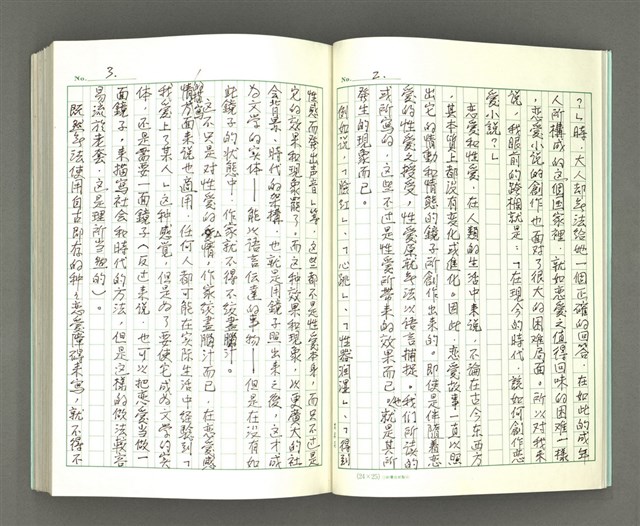 No. 2.
?」時,大人卻無法給她一個正確的回答,在如此的成年
人所構成的這個国家裡,就如恋愛之值得回味的困难一樣
,恋愛小說的創作也面对了很大的困难局面。所以对我來
說,我眼前的跨欄就是:「在現今的時代,該如何創作恋
愛小說?」
恋愛和性愛,在人類的生活中來說,不論在古今东西方
,其本質上都沒有变化或進化。因此,恋愛故事一直以照
出它的情動和情態的鏡子所創作出來的。即使是伴隨着恋
愛的性愛之授受,性愛原就無法以語言捕捉。我們所談的
或所寫的,这些不过是性愛所帶來的效果而已。就是其所
發生的現象而已。
例如說,「臉紅」、「心跳」、「性器潤濕」、「得到
(24×25)
No. 3.
性感而發出声音」等,这些都不是性愛本身,而只不过是
它的效果和現象罷了。而这种效果和現象,以更廣大的社
会背景、時代的架構,也就是用鏡子照出來之後,这才成
為文学的实体——能以語言伝達的事物——但是在沒有如
此鏡子的狀態中,作家就不得不該盡腦汁。
这不只是对性愛的
情,作家該盡腦汁而已,在恋愛感
情方面來說也適用。任何人都可能在实生活中経驗到「
我愛上了某人」这种感覚,但是為了要使它成為文学的实
体,还是需要一面鏡子(反过來说,也可以把恋愛当做一
面鏡子,來描寫社会和時代的方法,但是这樣的做法較容
易流於老套,这是理所当然的)。
既然無法使用自古即存的种々恋愛障碍來寫,就不得不